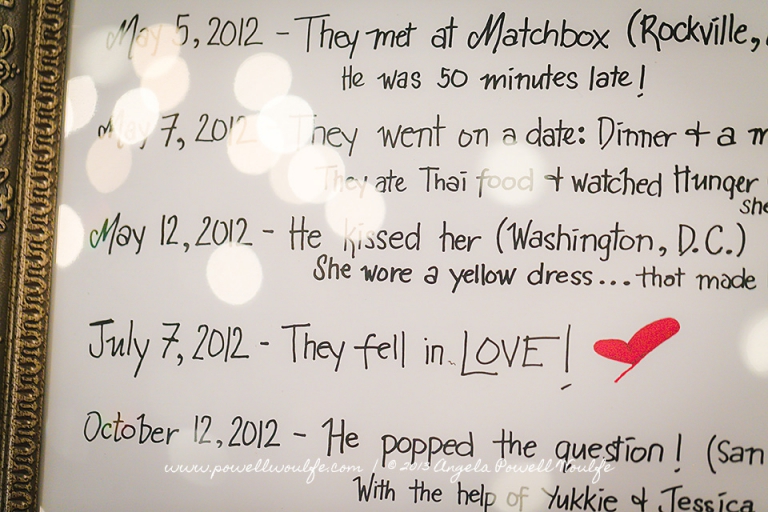 May 5, 2012 - They met at Matchbox (Rockville,
He was 50 minutes late!
May 7, 2012 They went on a date: Dinner + a m
They ate Thai food + watched Hunger
she
May 12, 2012 - He kissed her (Washington, D.C.)
She wore a yellow dress... that made
July 7, 2012 - They fell in LOVE!
October 12, 2012 - He popped the question! (San
www.powellwoulfe.com | © 2013 Angela Powell Woulfe
With the help of Yukkie & Jessica